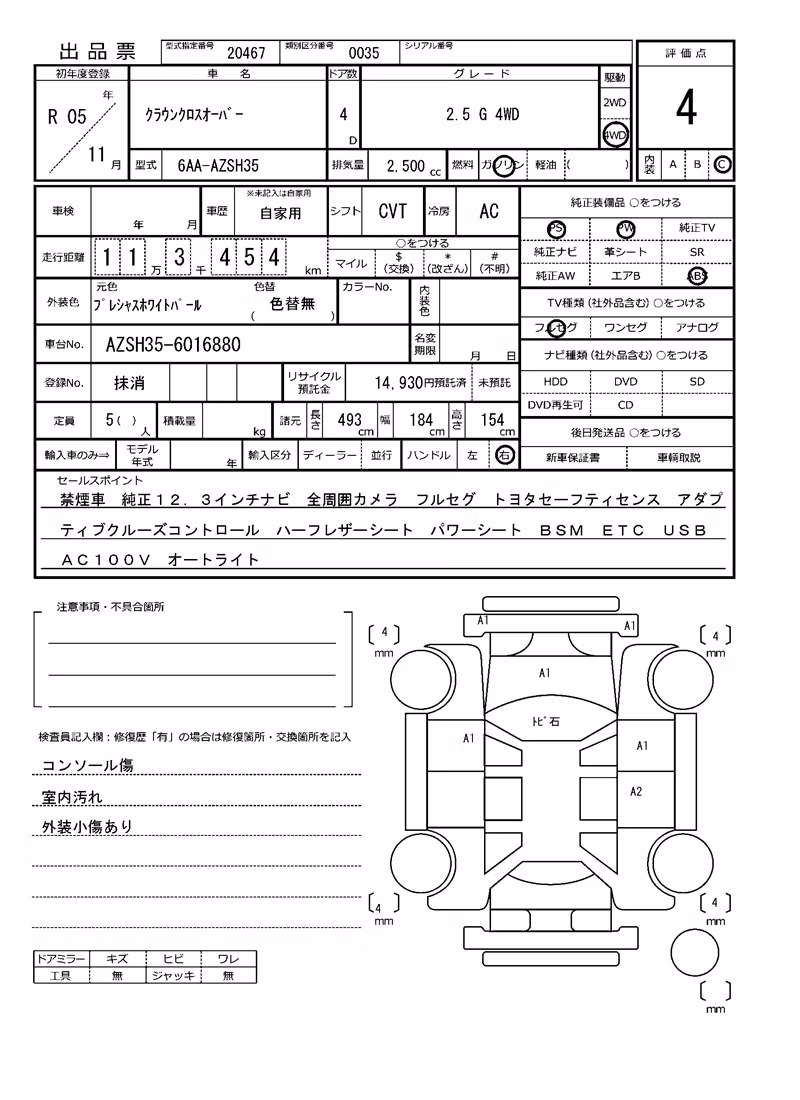 出品票 型式指定番号 20467 類別区分番号 0035 シリアル番号
評価点
4
内装 A B C
初年度登録 車名 ドア数 グレード 駆動
R 05 年 11 月 クラウンクロスオーバー 4 D 2.5 G 4WD 2WD
4WD
型式 6AA-AZSH35 排気量 2,500 cc 燃料 ガソリン 軽油 ( )
車検 年 月 車歴 ※未記入は自家用 自家用 シフト CVT 冷房 AC
走行距離 11万3千454 km ○をつける
マイル $(交換) *(改ざん) #(不明)
外装色 元色 プレシャスホワイトパール 色替 ( 色替無 ) カラーNo. 内装色
車台No. AZSH35-6016880 名変期限 月 日
登録No. 抹消 リサイクル預託金 14,930円預託済 未預託
定員 5( )人 積載量 kg 諸元 長さ 493cm 幅 184cm 高さ 154cm
輸入車のみ⇒ モデル年式 年 輸入区分 ディーラー 並行 ハンドル 左 右
純正装備品 ○をつける
PS PW 純正TV
純正ナビ 革シート SR
純正AW エアB ABS
TV種類(社外品含む)○をつける
フルセグ ワンセグ アナログ
ナビ種類(社外品含む)○をつける
HDD DVD SD
DVD再生可 CD
後日発送品 ○をつける
新車保証書 車輌取説
セールスポイント
禁煙車 純正12.3インチナビ 全周囲カメラ フルセグ トヨタセーフティセンス アダプ
ティブクルーズコントロール ハーフレザーシート パワーシート BSM ETC USB
AC100V オートライト
注意事項・不具合箇所
検査員記入欄:修復歴「有」の場合は修復箇所・交換箇所を記入
コンソール傷
室内汚れ
外装小傷あり
ドアミラー キズ ヒビ ワレ
工具 無 ジャッキ 無
A1 A1
〔4〕mm 〔4〕mm
A1
トビ石
A1 A1
A2
〔4〕mm 〔4〕mm
〔 〕mm